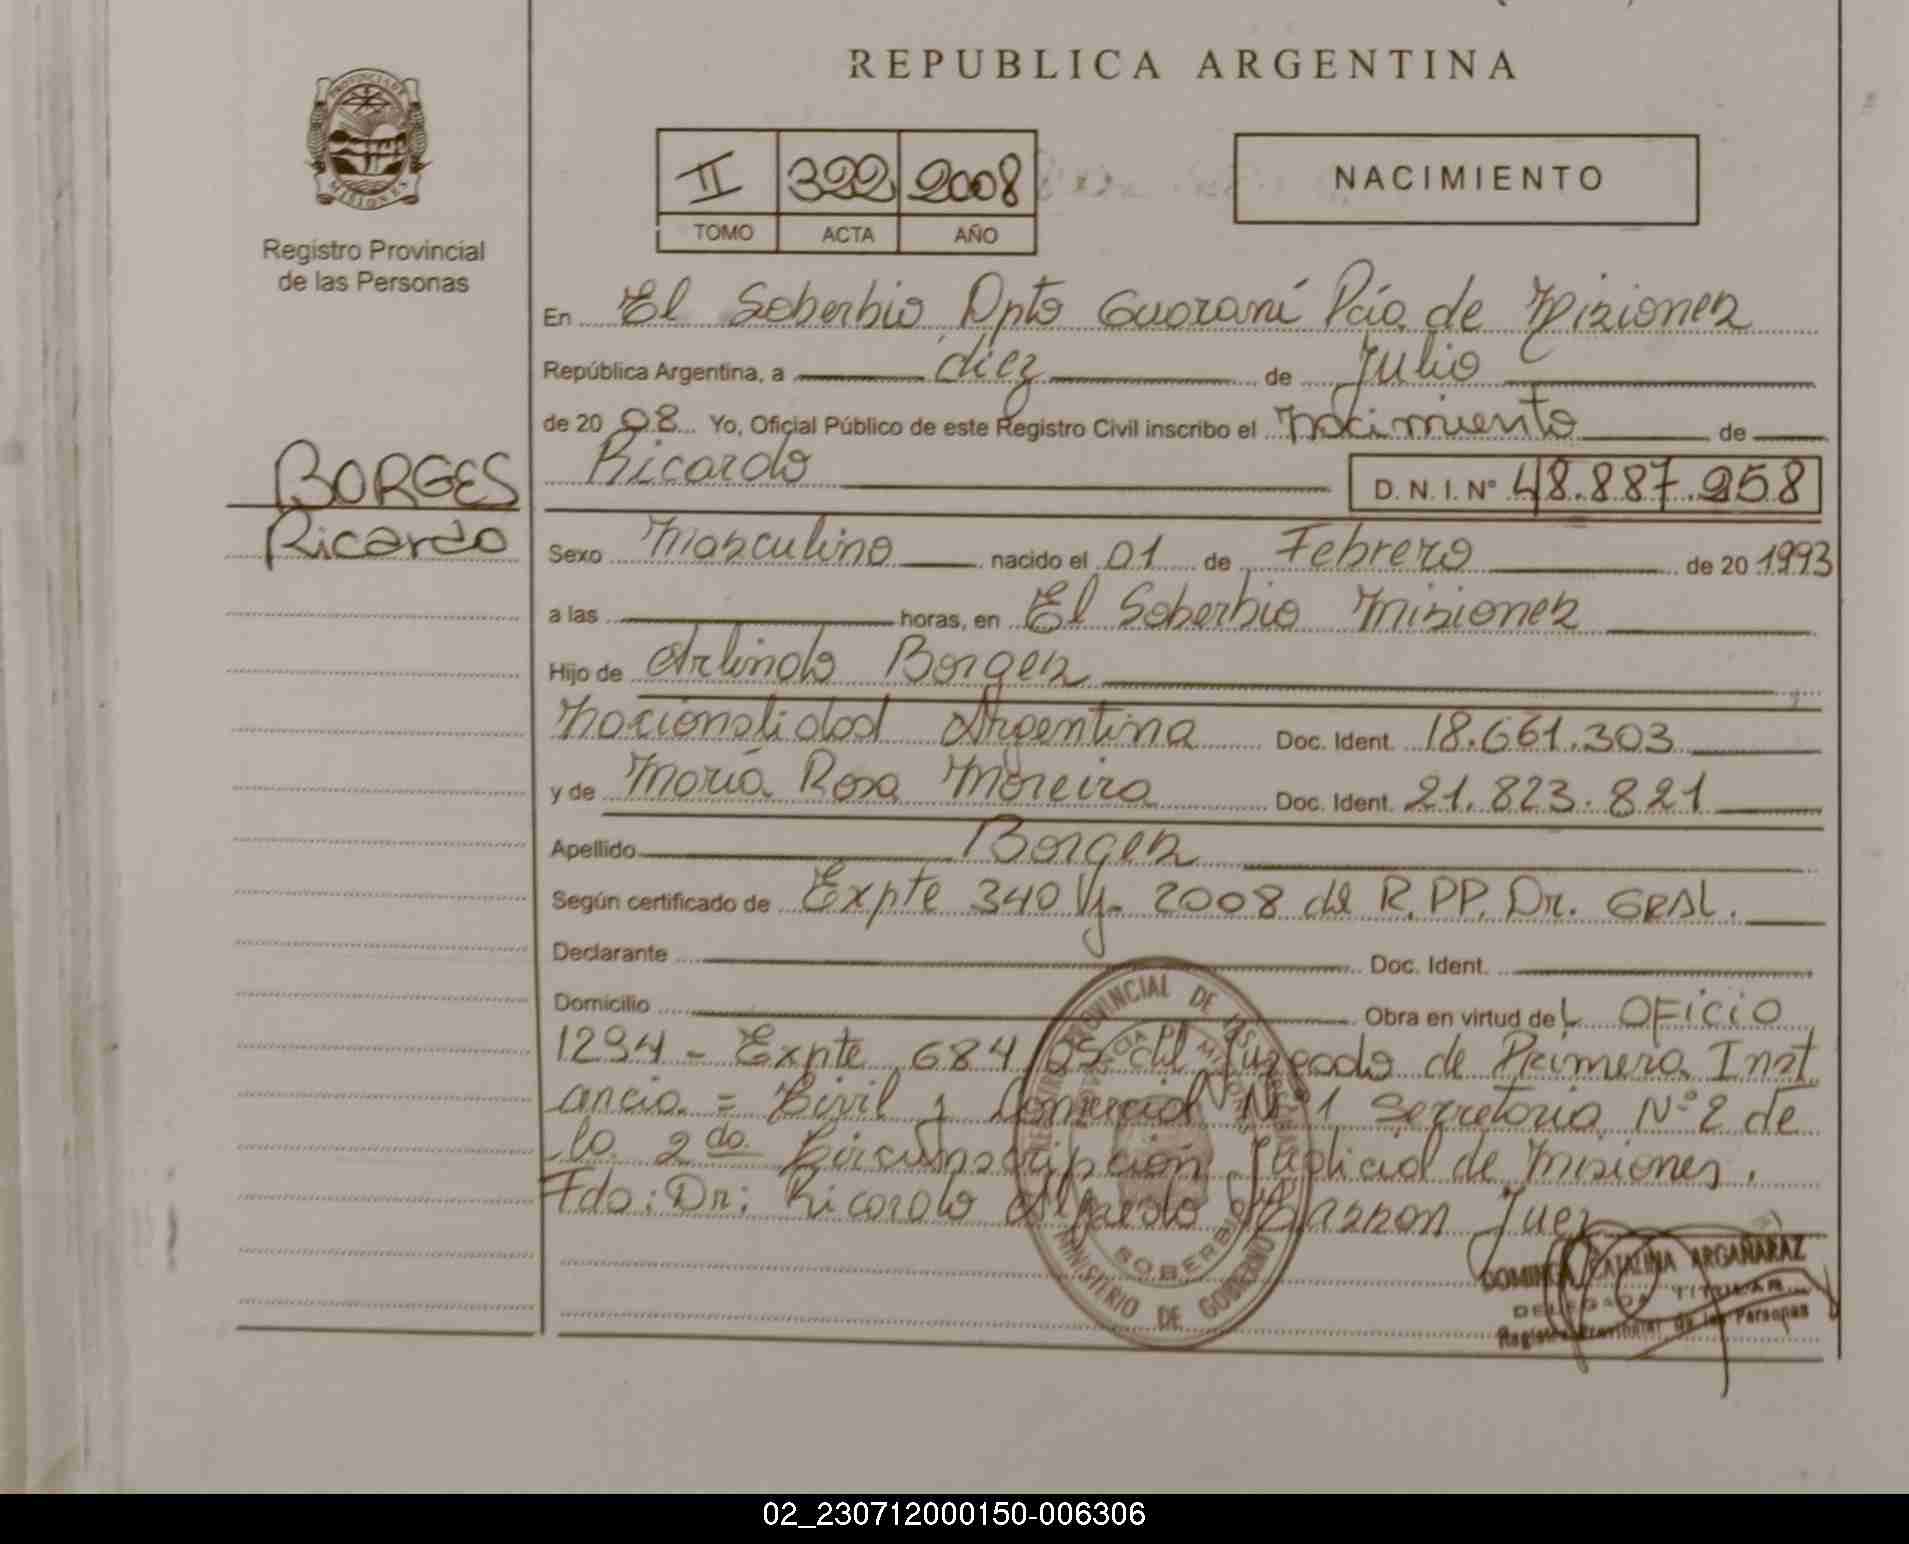 REPUBLICA ARGENTINA
PROVINCIA DE
MISIONES
Registro Provincial
de las Personas
II 322 2008
TOMO ACTA AÑO
NACIMIENTO
En El Soberbio Dpto Guaraní Pcia de Misiones
República Argentina, a diez de Julio
de 20 08 Yo, Oficial Público de este Registro Civil inscribo el nacimiento de
Ricardo D. N. I. N° 48.887.958
BORGES
Ricardo
Sexo Masculino nacido el 01 de Febrero de 20 1993
a las horas, en El Soberbio Misiones
Hijo de Arlindo Borges
nacionalidad Argentina Doc. Ident. 18.661.303
y de María Rosa Moreira Doc. Ident. 21.823.821
Apellido Borges
Según certificado de Expte 340 2008 del R.PP. Dr. GRAL.
Declarante Doc. Ident.
Domicilio Obra en virtud de L OFICIO
1294 - Expte 684 05 del Juzgado de Primera Inst
ancia = Civil y Comercial N°1 Secretaria N°2 de
la 2da Circunscripción Judicial de Misiones.
Fdo: Dr: Ricardo Alfredo Juez
REGISTRO PROVINCIAL DE LAS PERSONAS
PROVINCIA MISIONES
SOBERBIO
MINISTERIO DE GOBIERNO
DOMINGA CATALINA ARGAÑARAZ
DELEGADA TITULAR
Registro Provincial de las Personas
02_230712000150-006306